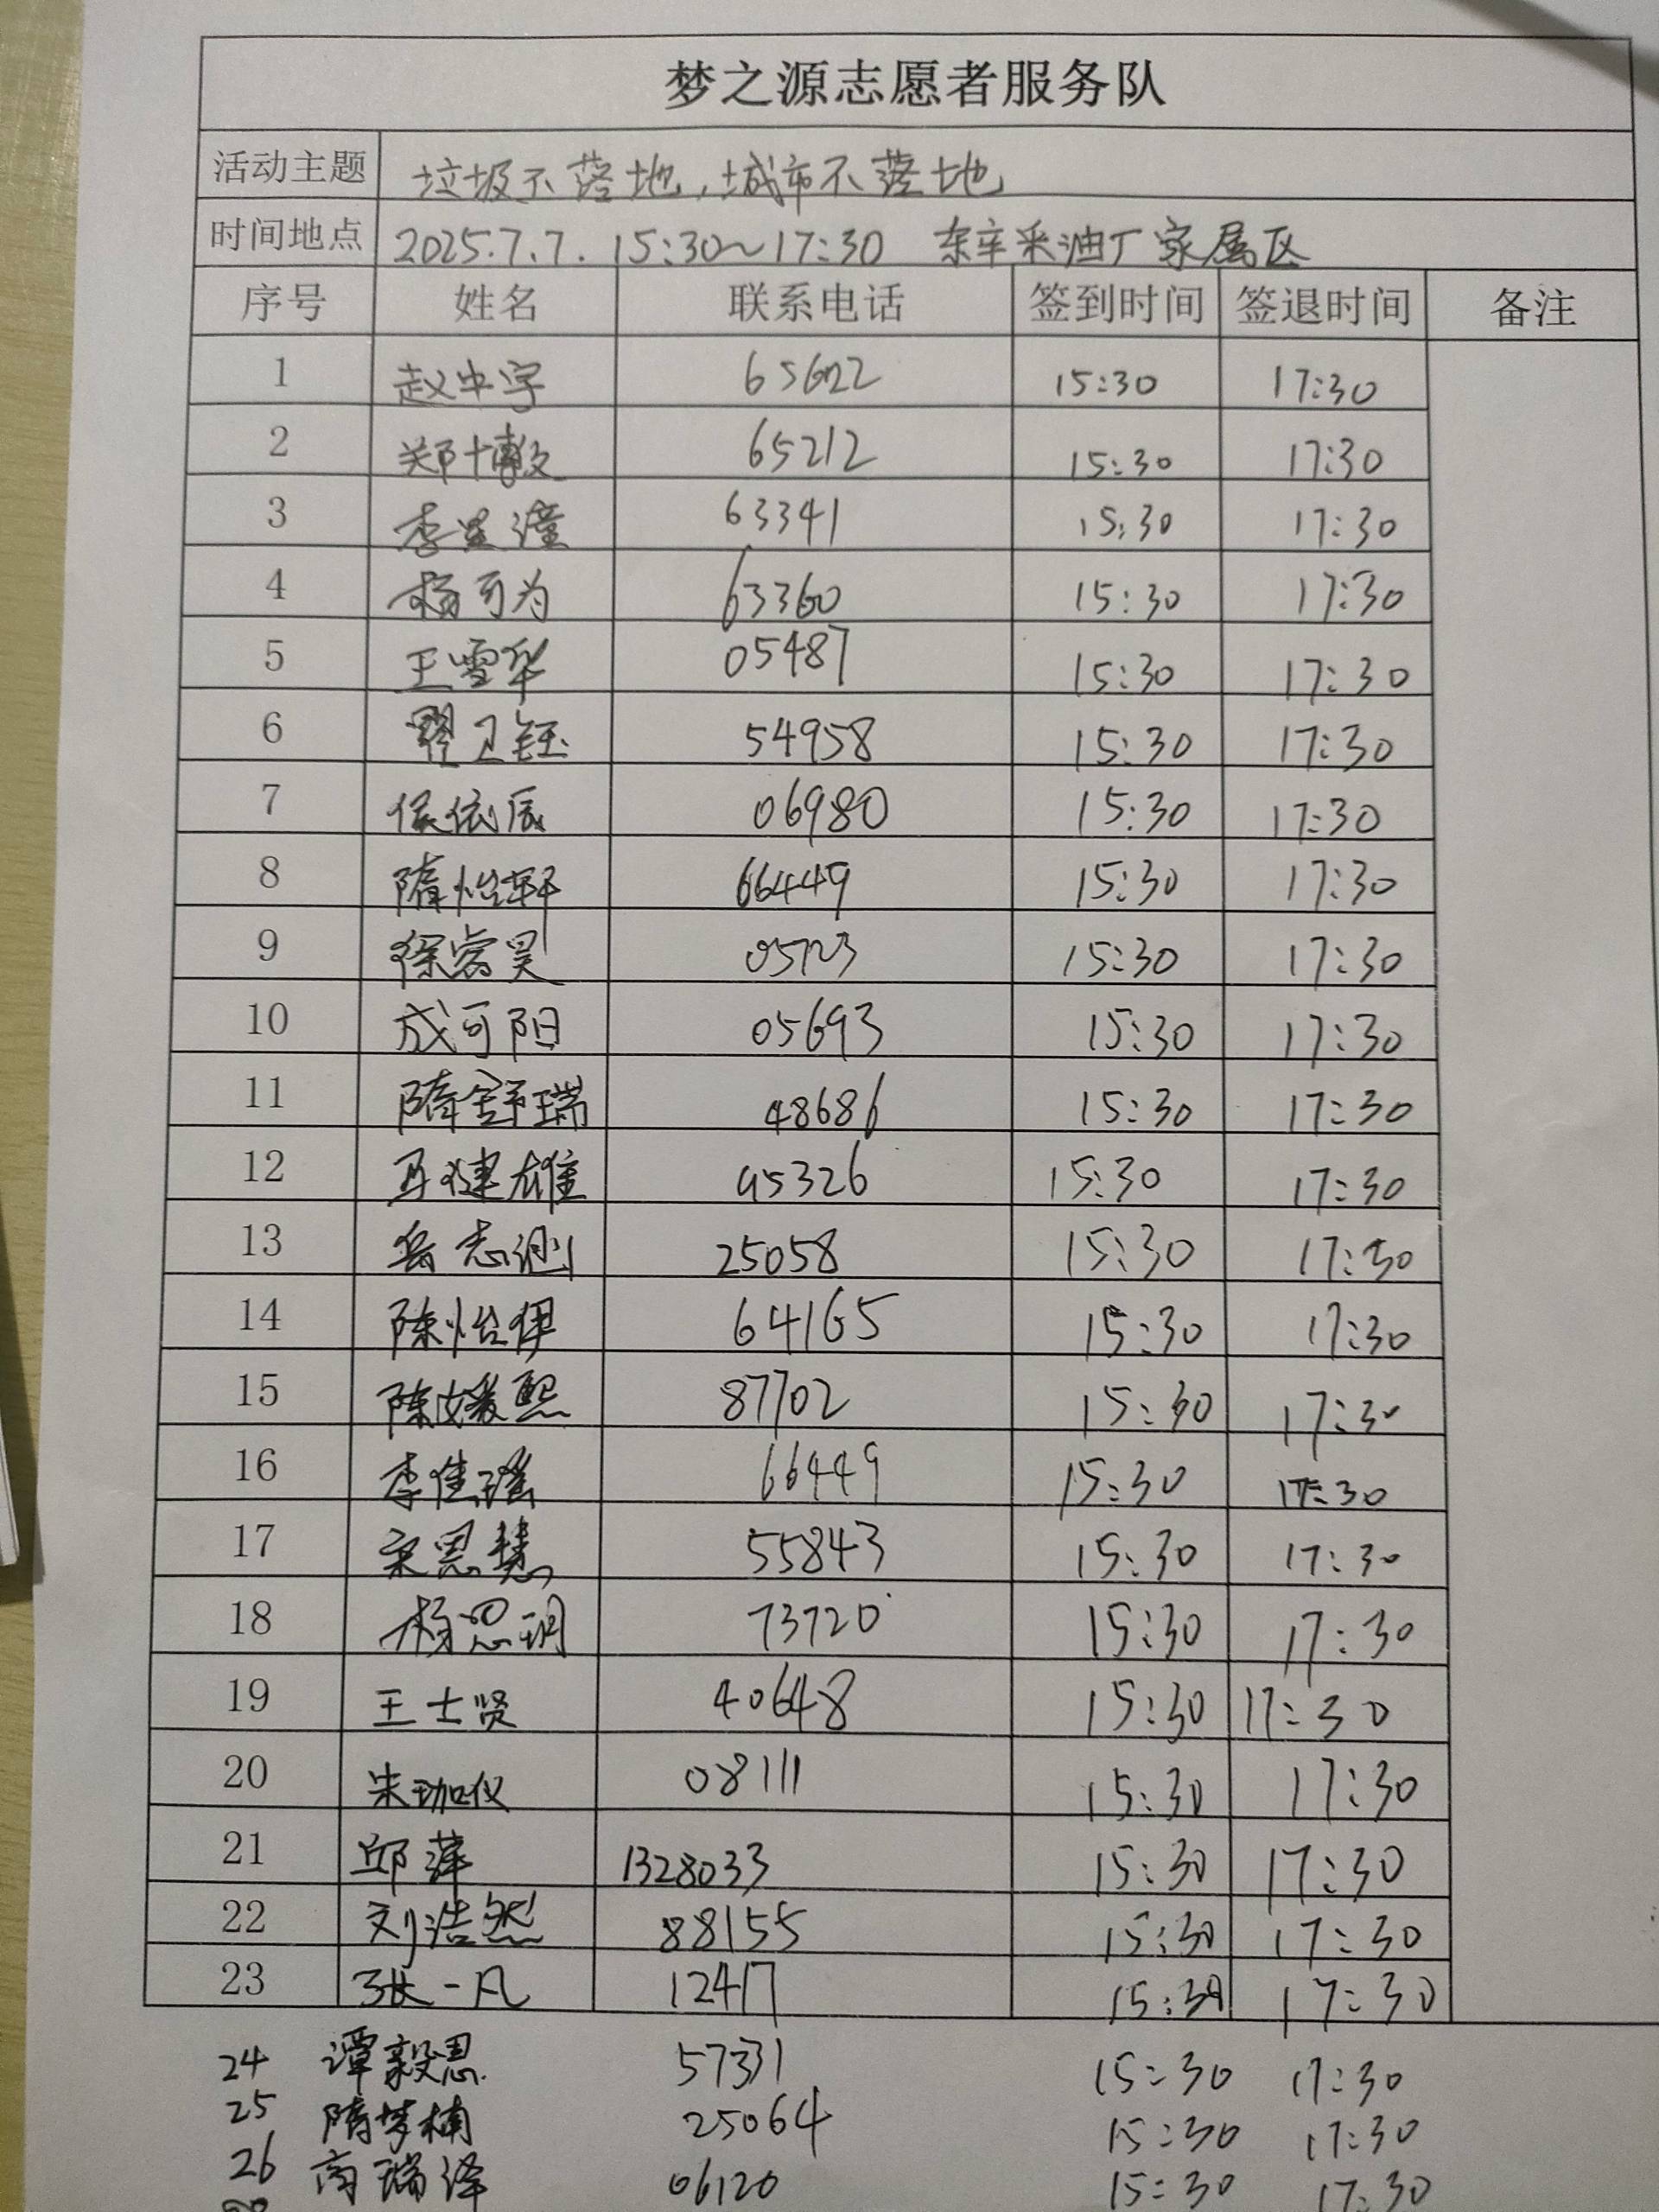 梦之源志愿者服务队
活动主题 垃圾不落地,城市不落地
时间地点 2025.7.7. 15:30~17:30 东辛采油厂家属区
序号 姓名 联系电话 签到时间 签退时间 备注
1 赵中宇 65622 15:30 17:30
2 郑博文 65212 15:30 17:30
3 李星潼 63341 15:30 17:30
4 杨可为 63360 15:30 17:30
5 王雪华 05487 15:30 17:30
6 翟卫钰 54958 15:30 17:30
7 侯依辰 06980 15:30 17:30
8 隋怡轩 66449 15:30 17:30
9 徐睿昊 05723 15:30 17:30
10 成可阳 05693 15:30 17:30
11 隋舒瑞 48686 15:30 17:30
12 马健雄 45326 15:30 17:30
13 岳志 25058 15:30 17:30
14 陈怡伊 64165 15:30 17:30
15 陈媛熙 87702 15:30 17:30
16 李佳瑶 66449 15:30 17:30
17 宋思慧 55843 15:30 17:30
18 杨思玥 73720 15:30 17:30
19 王士贤 40648 15:30 17:30
20 朱珈仪 08111 15:30 17:30
21 邱萍 1328033 15:30 17:30
22 刘浩然 88155 15:30 17:30
23 张一凡 12417 15:30 17:30
24 谭毅恩 57331 15:30 17:30
25 隋梦楠 25064 15:30 17:30
26 高瑞泽 06120 15:30 17:30